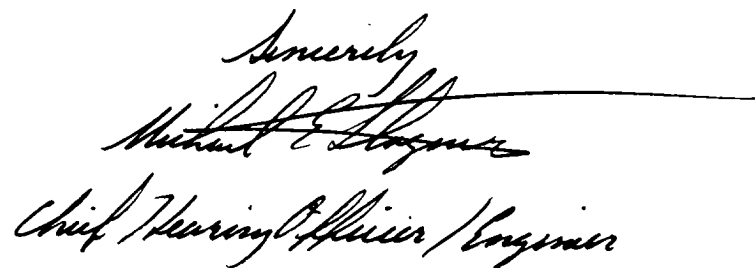 Sincerily
Michael E. Stogner
Chief Hearing Officer / Engineer